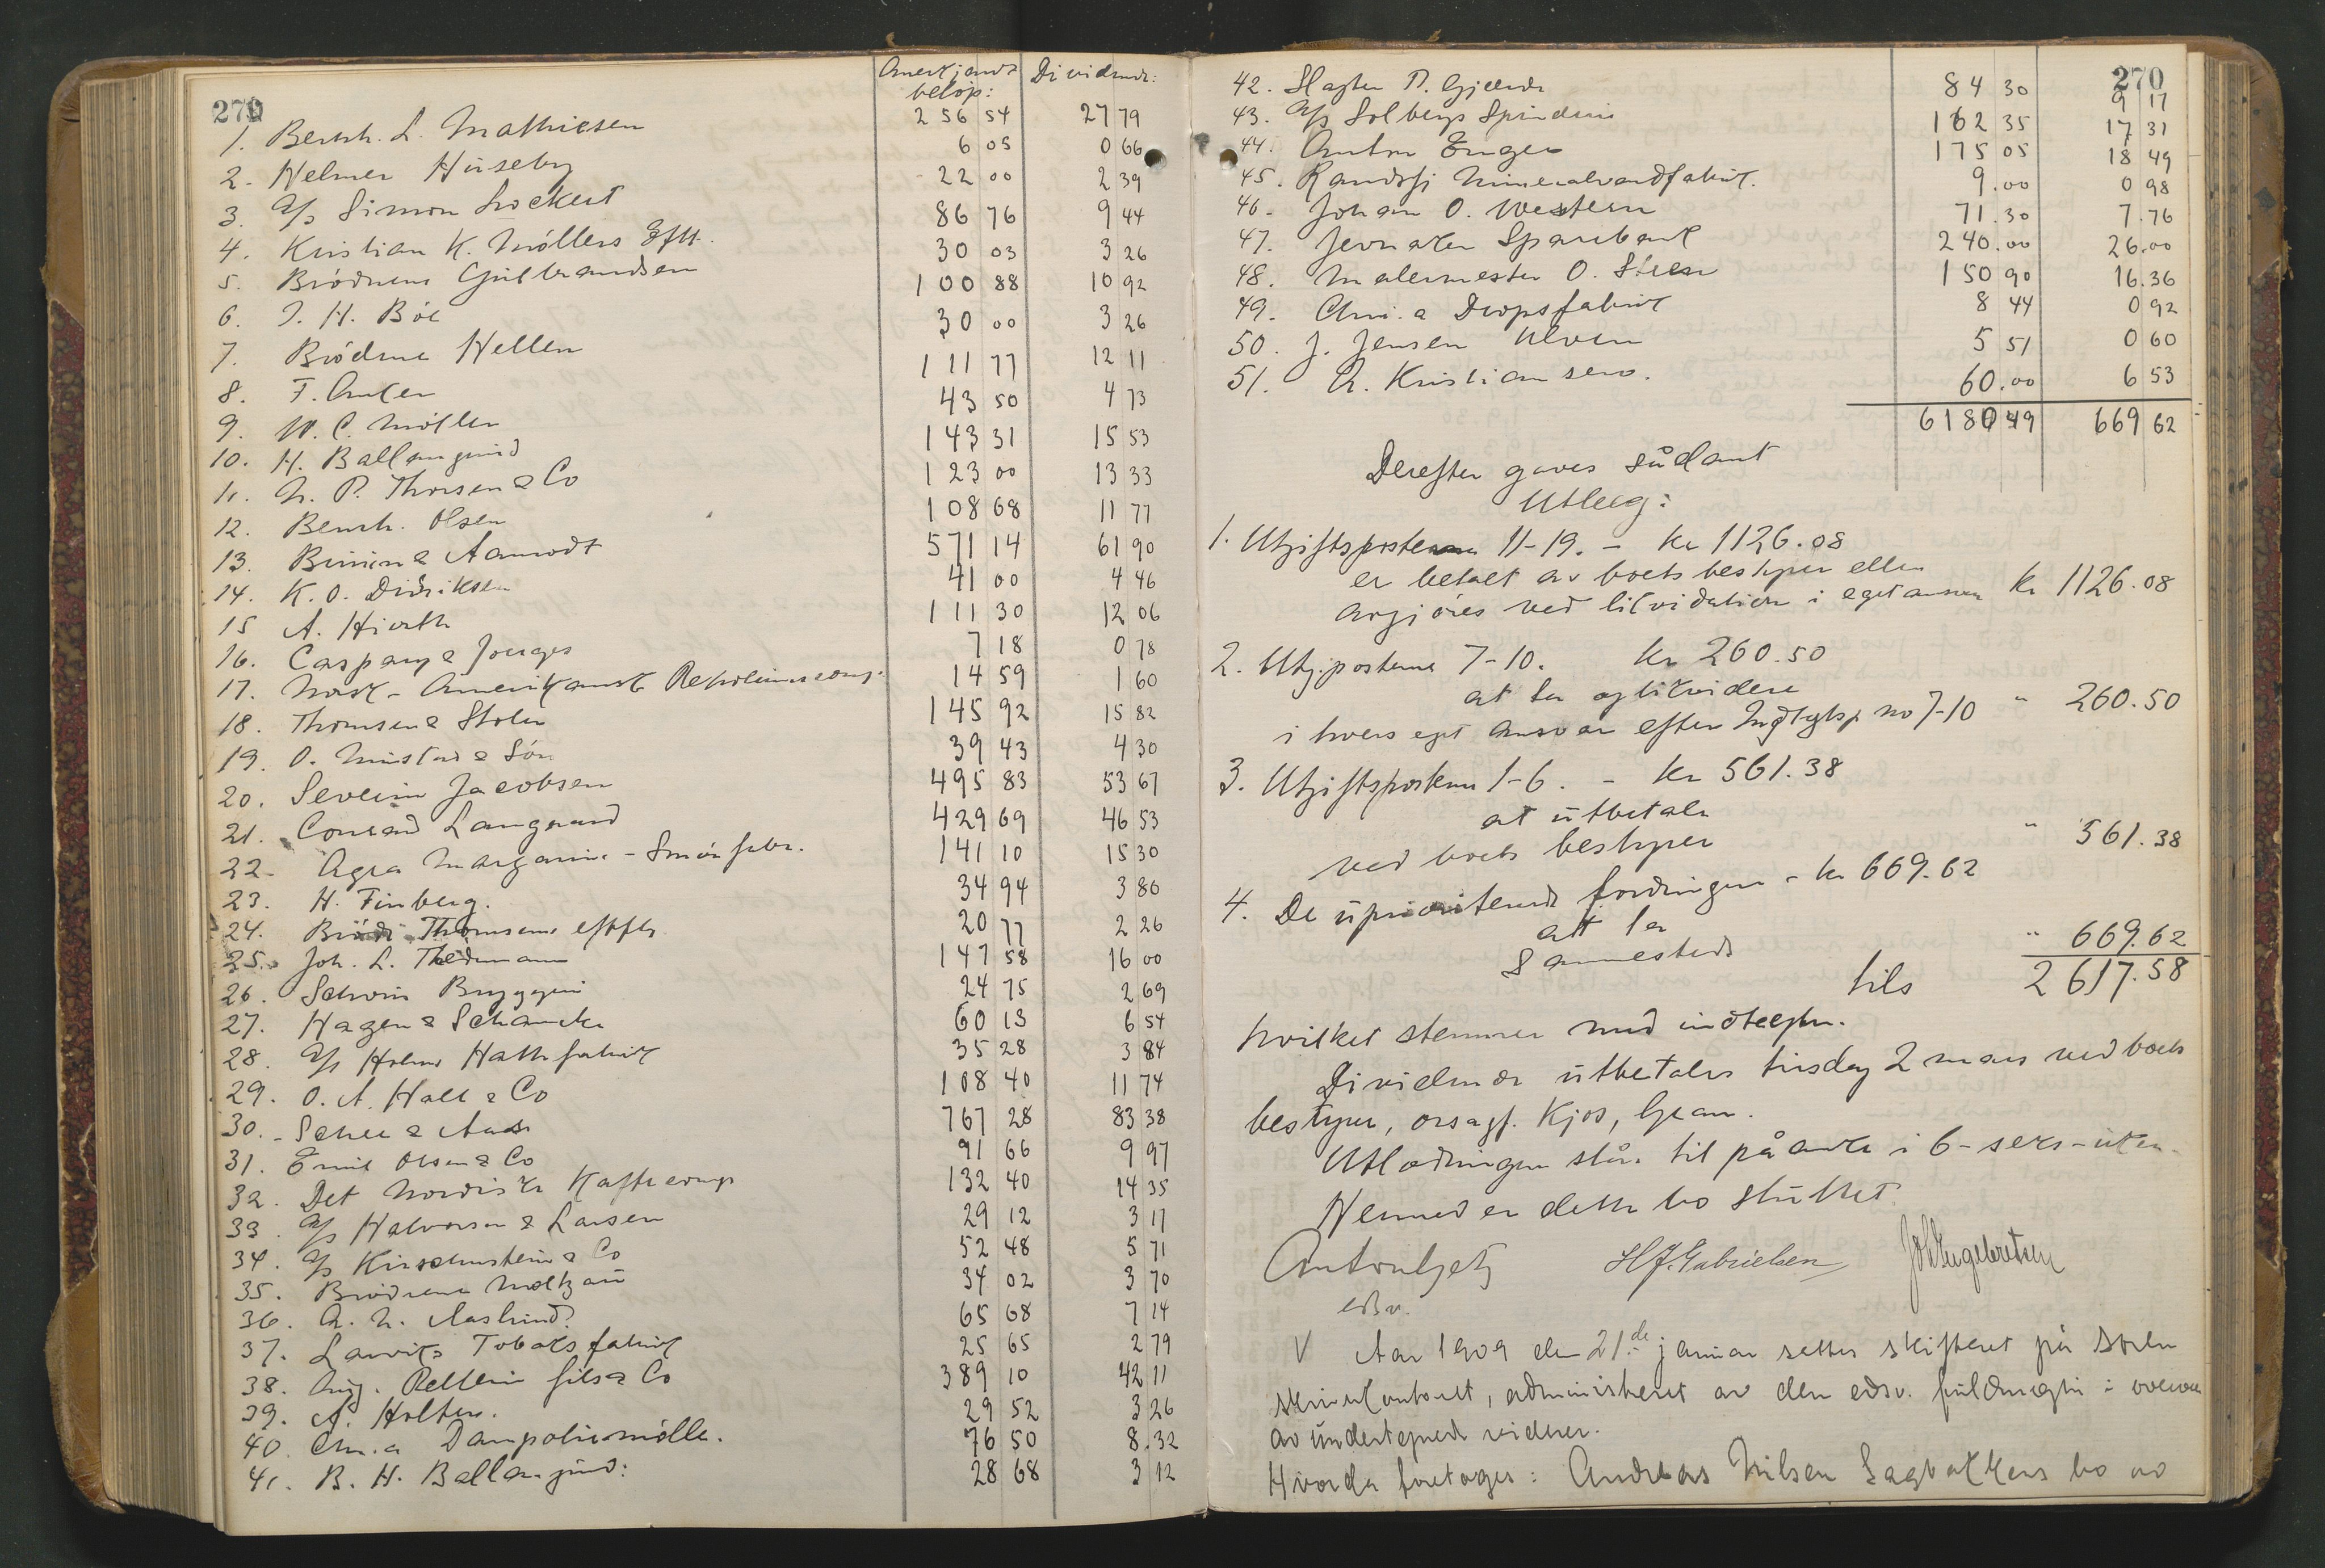 270
Anerkjendt Dividende:
beløp:
1. Bernh. L. Mathiesen 256 54 27 79
2. Helmer Huseby 6 05 0 66
3. A/s Simon Lockert 22 00 2 39
4. Kristian K. Møllers Eftf. 86 76 9 44
5. Brødrene Gulbrandsen 30 03 3 26
6. J. H. Böe 100 88 10 92
7. Brødrene Hellem 30 00 3 26
8. F. Anker 111 77 12 11
9. W. C. Møller 43 50 4 73
10. H. Ballangrud 143 31 15 53
11. N. P. Thorsen & Co 123 00 13 33
12. Bernh. Olsen 108 68 11 77
13. & Aamodt 571 14 61 90
14. K. O. Didriksen 41 00 4 46
15 A. Hiorth 111 30 12 06
16. Caspary & Jorges 7 18 0 78
17. Norsk-Amerikansk Petroleumscomp. 14 59 1 60
18. Thomsen & Stoler 145 92 15 82
19. O. Mustad & Søn 39 43 4 30
20. Severin Jacobsen 495 83 53 67
21. Conrad Langaard 429 69 46 53
22. Agra Margarine-Smørfabr. 141 10 15 30
23. H. Finberg. 34 94 3 80
24. Brødr. Thomsens eftflr 20 77 2 26
25. Joh. L. Thedemann 147 58 16 00
26. Schous Bryggeri 24 75 2 69
27. Hagen & Schancke 60 13 6 54
28. A/s Holms Hattefabrik 35 28 3 84
29. O. A. Hall & Co 108 40 11 74
30. Schee & Aass 767 28 83 38
31. Emil Olsen & Co 91 66 9 97
32. Det Nordiske Kaffecomp 132 40 14 35
33. A/s Halvorsen & Larsen 29 12 3 17
34. A/s Kirschenstein & Co 52 48 5 71
35. Brødrene Moltzau 34 02 3 70
36. A. N. Aaslund 65 68 7 14
37. Larviks Tobaksfabrik 25 65 2 79
38. Aug. Pellerin fils & Co 389 10 42 11
39. A. Holter. 29 52 3 26
40. Chr.a Dampoliemølle. 76 50 8.32
41. B. H. Ballangrud: 28 68 3 12
270
42. Slagter P. Gjærde 84 30 9 17
43. A/s Solbergs Spinderi 162 35 17 31
44. Anton Enger 175 05 18 49
45. Randsfj Mineralvandfabrik. 9.00 0 98
46. Johan O. Western 71.30 7.76
47. Jevnaker Sparebank 240.00 26.00
48. Malermester O. Steen 150 90 16.36
49. Chri.a Dropsfabrik 8 44 0 92
50. J. Jensen Ulven 5 51 0 60
51. A. Kristiansen. 60.00 6 53
6180 49 669 62
Derefter gaves sådant
Utlæg:
1. Utgiftsposterne 11-19. - Kr 1126.08
er betalt av boets bestyrer eller
avgjöres ved likvidation i eget ansvar kr 1126.08
2. Utg.posterne 7-10. Kr 260.50
at ta og likvidere
i hvers eget ansvar efter Indtgtsp no 7-10 " 260.50
3. Utgiftsposterne 1-6. - Kr 561.38
at utbetale
ved boets bestyrer " 561.38
4. De uprioriterede fordringer - kr 669.62
at ta
sammesteds " 669.62
tils 2617.58
hvilket stemmer med indtægter.
Dividende utbetales tirsdag 2 mars ved boets
bestyrer, orsagf. Kjos, Gran.
Utlodningen står til påanke i 6-seks-uker.
Hermed er dette bo sluttet.
Anton Lyetz H J. Gabrielsen Joh Engebretsen
edsv.
V Aar 1909 den 21.de januar sattes skifteret på Soren-
skriverkontoret, administreret av den edsv. fuldmægtig i overvær
av undertegnede vidner.
Hvorda foretages: Andreas Nilsen Sagbakkens bo av